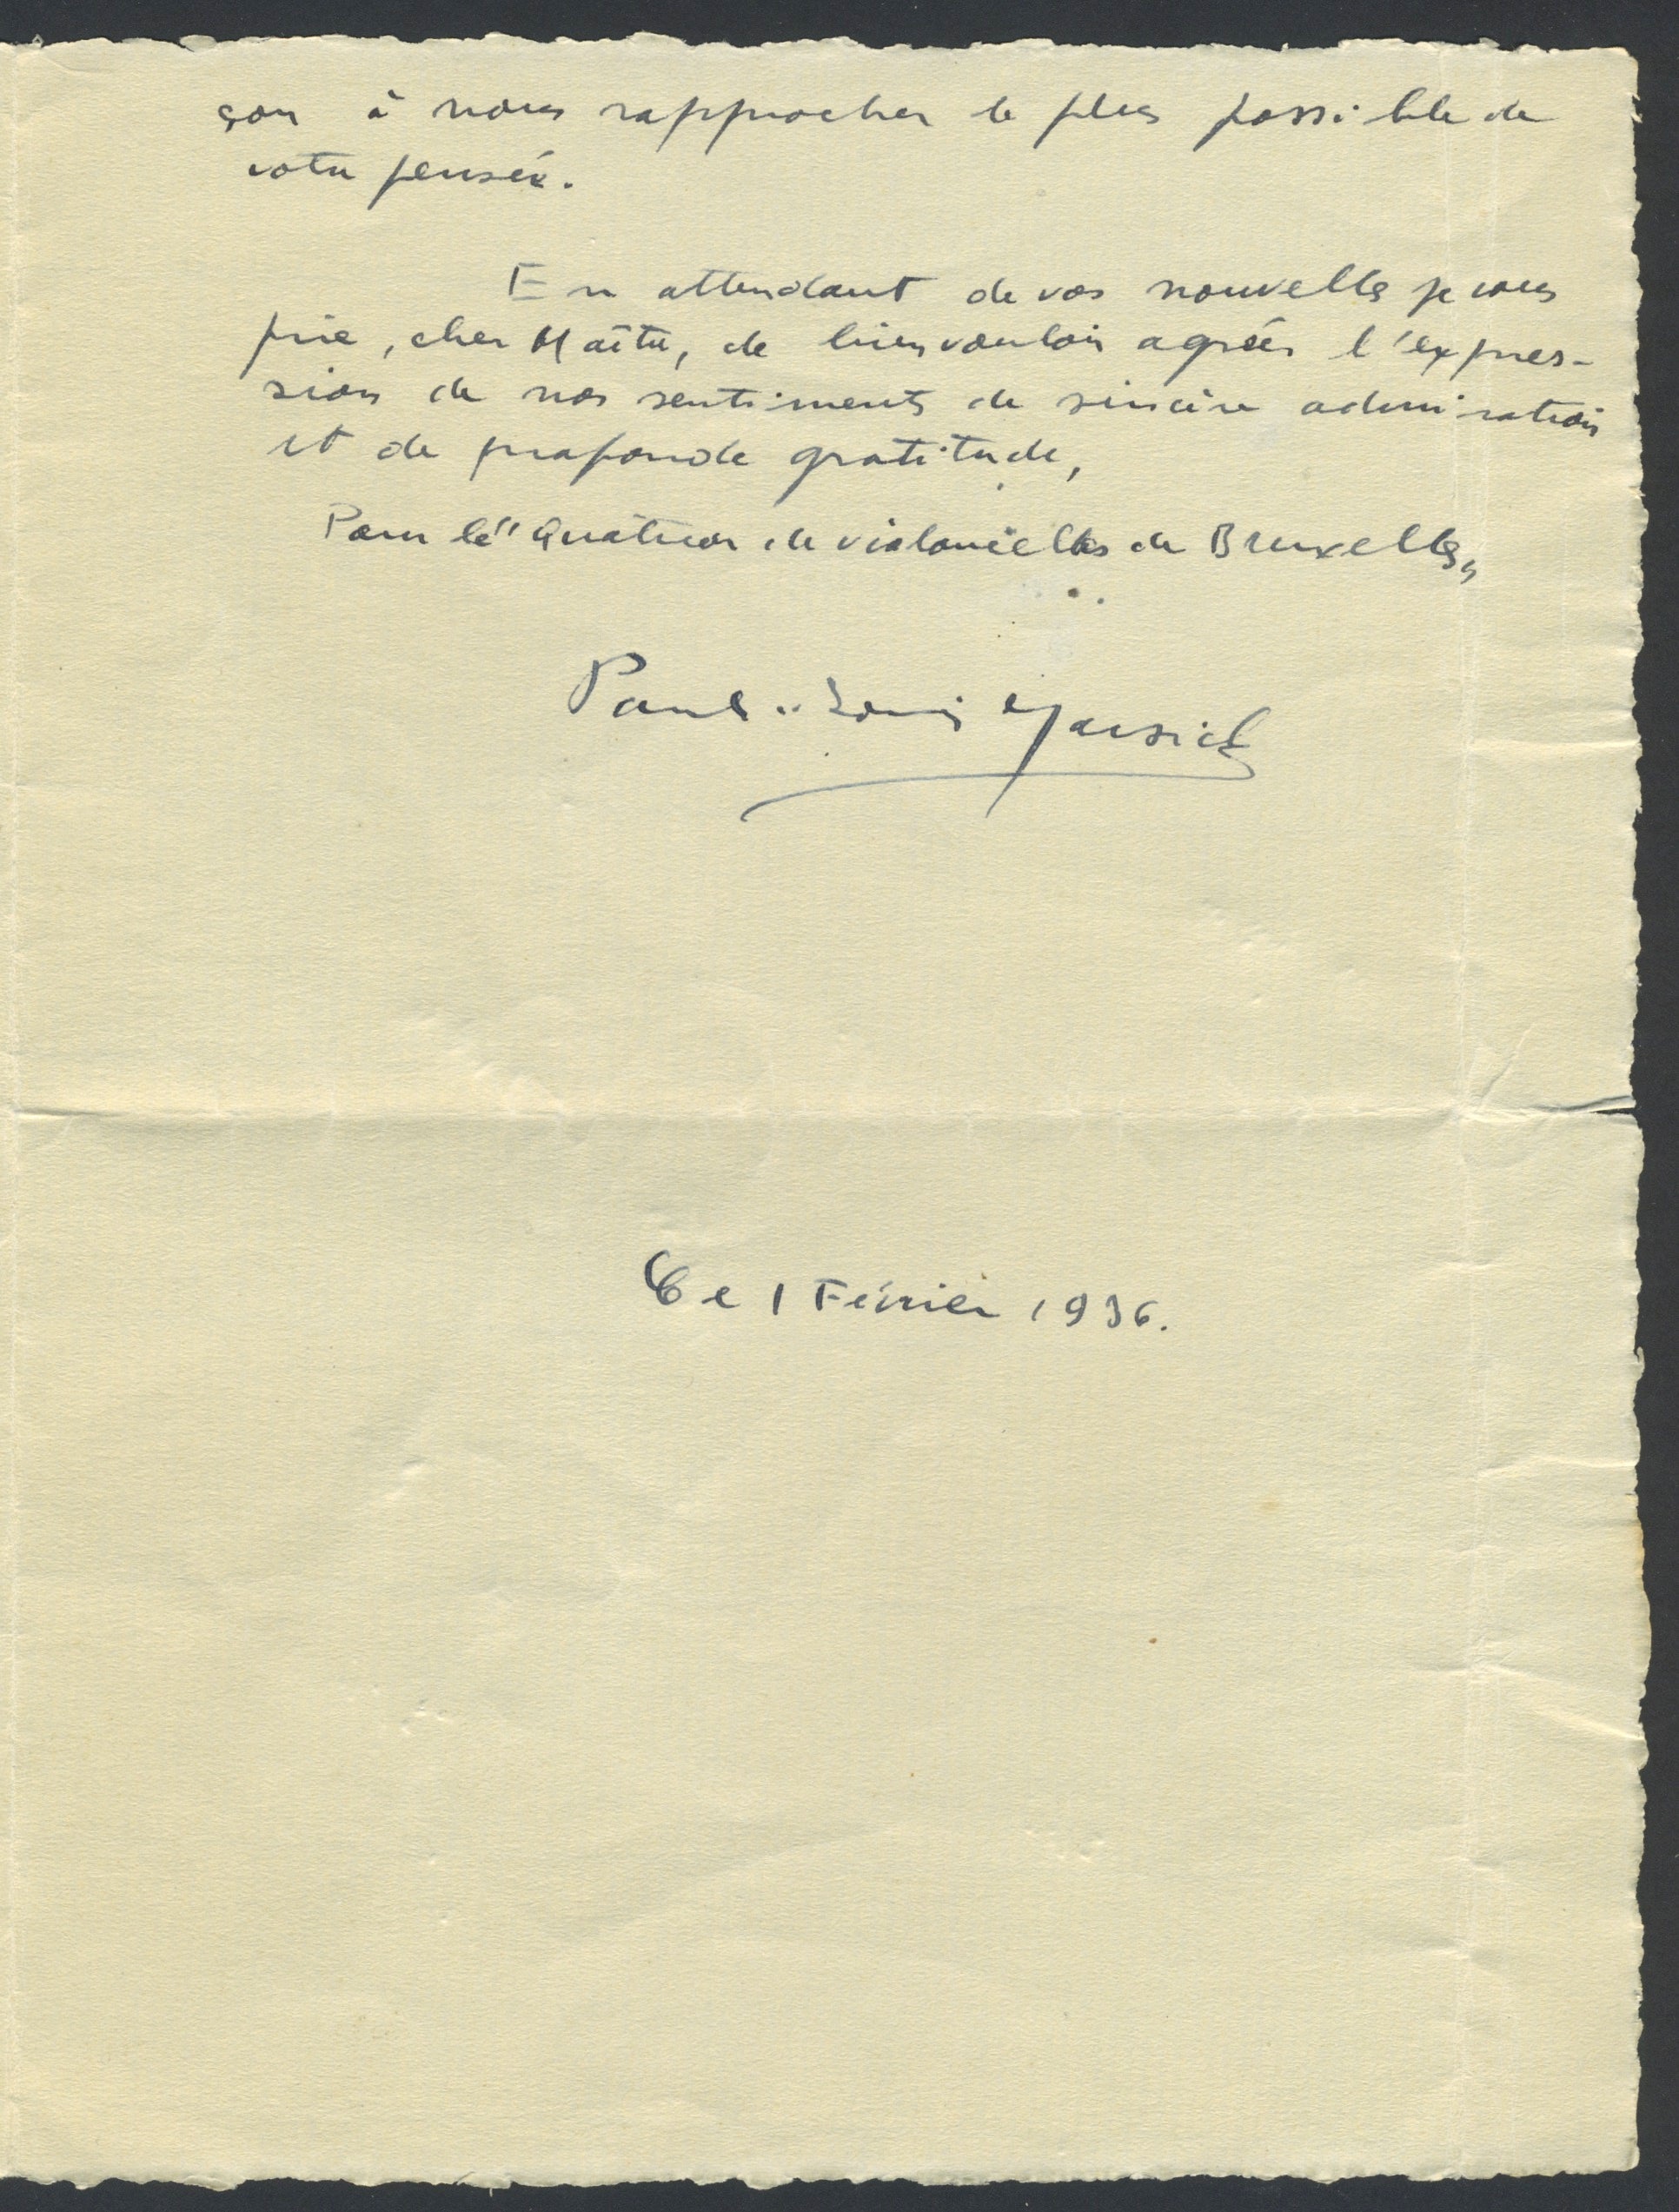 çon à nous rapprocher le plus possible de
votre pensée.
En attendant de vos nouvelles je vous
prie, cher Maître, de bien vouloir agréer l'expres-
sion de nos sentiments de sincère admiration
et de profonde gratitude,
Pour le "Quatuor de violoncelles de Bruxelles"
Paul-Louis Marsick
Ce 1 Février 1936.